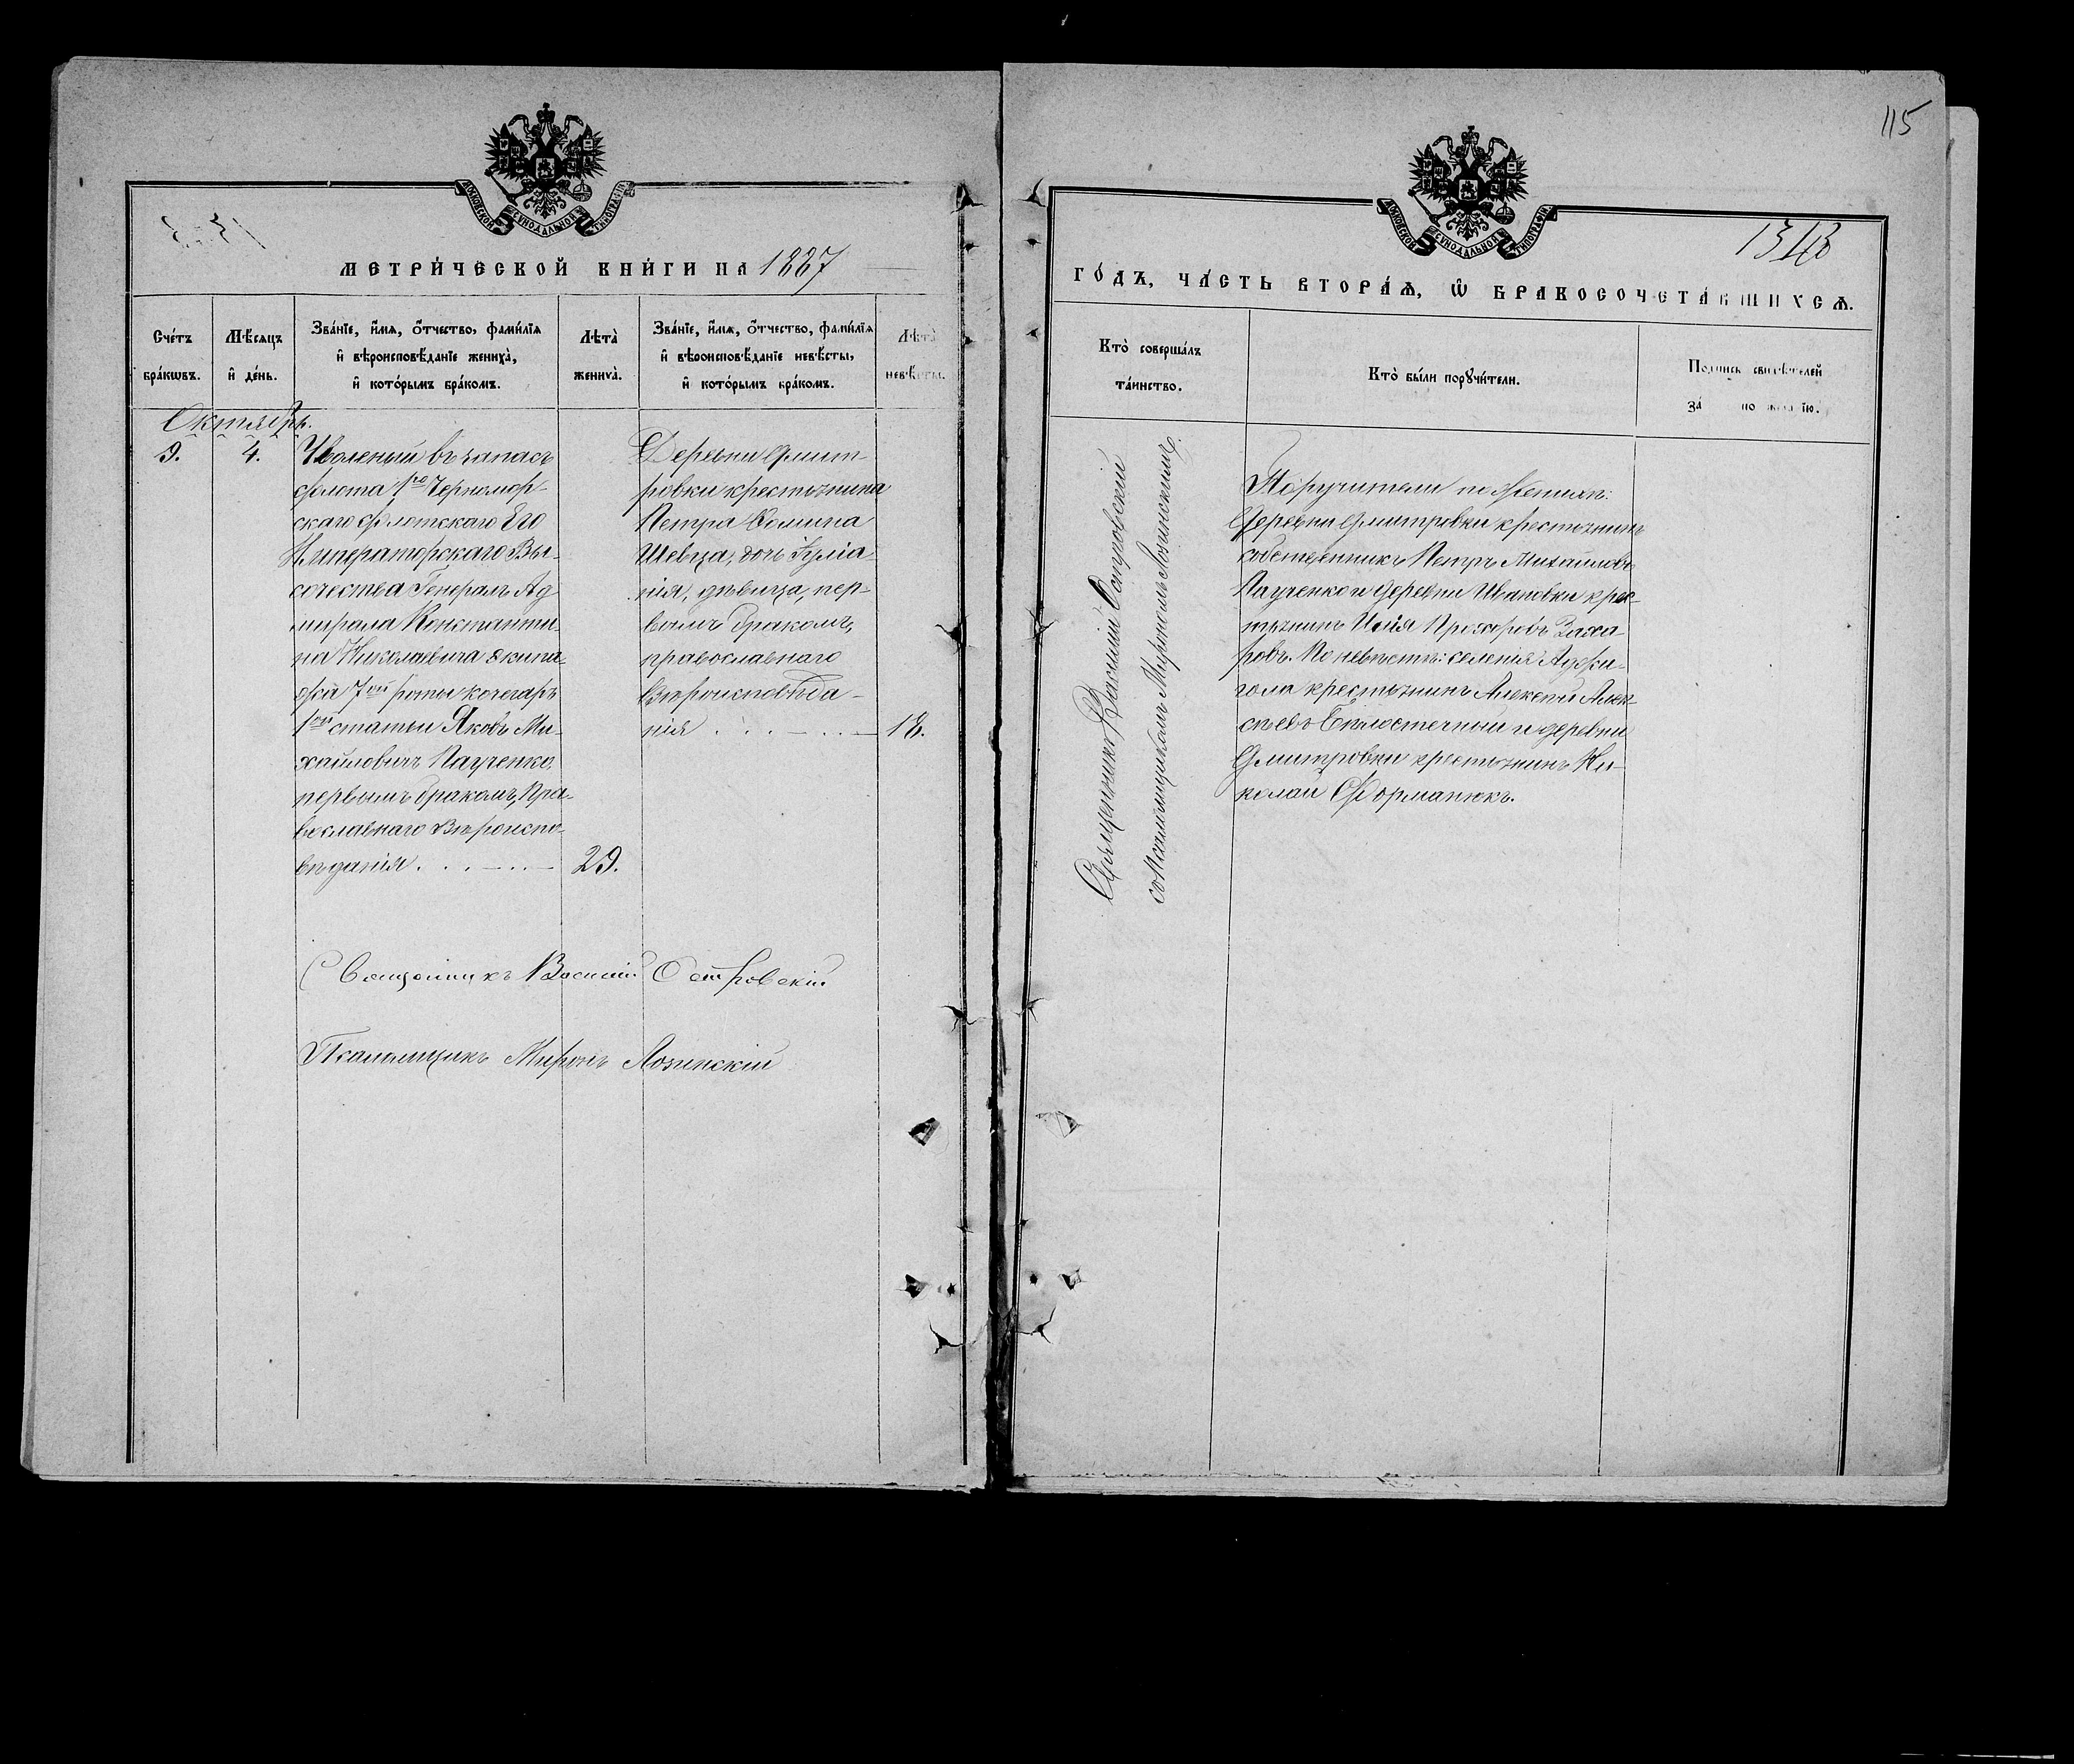 115
МОСКОВСКОЙ СѴНОДАЛЬНОЙ ТИПОГРАФІИ.
МЕТРИ́ЧЕСКОЙ КНИ́ГИ НА 1887
Сче́тъ бра́кѡвъ.
Мѣ́сяцъ и҆ де́нь.
Зва́нїе, и҆́мѧ, ѻ҆́тчество, фами́лїѧ
и҆ вѣроисповѣ́данїе женихѧ̀,
и҆ кото́рымъ бра́комъ.
Лѣта̀ женихѧ̀.
Зва́нїе, и҆́мѧ, ѻ҆́тчество, фами́лїѧ
и҆ вѣроисповѣ́данїе невѣ́сты,
и҆ кото́рымъ бра́комъ.
Лѣта̀ невѣ́сты.
Октябрь.
9.
4.
Уволеный въ запасъ
флота 1го Черномор-
скаго флотскаго Его
Императорскаго Вы-
сочества Генералъ Ад-
мирала Константи-
на Николаевича экипа-
жа 7ой роты кочегаръ
1ой статьи Яковъ Ми-
хайловичъ Паученко,
первымъ бракомъ, Пра-
вославнаго Вѣроиспо-
вѣданія . . . — . . —
29.
Деревни Дмит-
ровки крестьянина
Петра Фомина
Шевца, дочь Іулiа-
нія, дѣвица, пер-
вымъ бракомъ,
православнаго
Вѣроисповѣда-
нія . . . — . . —
18.
Священникъ Василий Островскій
Псаломщикъ Миронъ Лозинскій
МОСКОВСКОЙ СѴНОДАЛЬНОЙ ТИПОГРАФІИ.
ГО́ДЪ, ЧА́СТЬ ВТОРА́Ѧ, Ѡ҆ БРАКОСОЧЕТА́ВШИХСѦ.
Кто̀ соверша́лъ
та́инство.
Кто̀ бы́ли порꙋчи́тели.
Подпись свидѣтелей
Священникъ Василий Островскій
со Псаломщикомъ Мирономъ Лозинскимъ.
Поручители по женихѣ:
Деревни Дмитровки крестьянинъ
собственникъ Петръ Михайловъ
Паученко и деревни Ивановки крес-
тьянинъ Илія Прохоровъ Заха-
ровъ. По невѣстѣ: селенія Аджи-
гола крестьянинъ Алексѣй Алек-
сѣевъ и деревни
Дмитровки крестьянинъ Ни-
колай Форманюкъ.